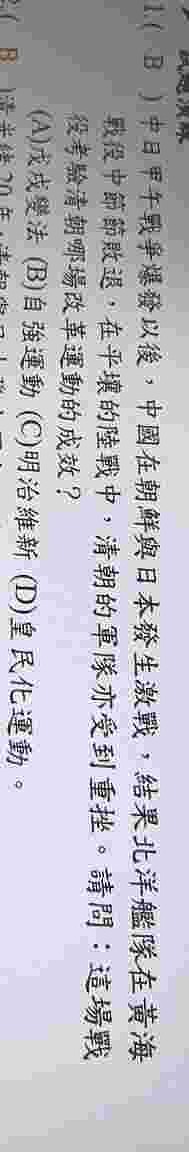 1.( B )中日甲午戰爭爆發以後，中國在朝鮮與日本發生激戰，結果北洋艦隊在黃海
戰役中節節敗退，在平壤的陸戰中，清朝的軍隊亦受到重挫。請問：這場戰
役考驗清朝哪場改革運動的成效？
(A)戊戌變法 (B)自強運動 (C)明治維新 (D)皇民化運動。
( B )